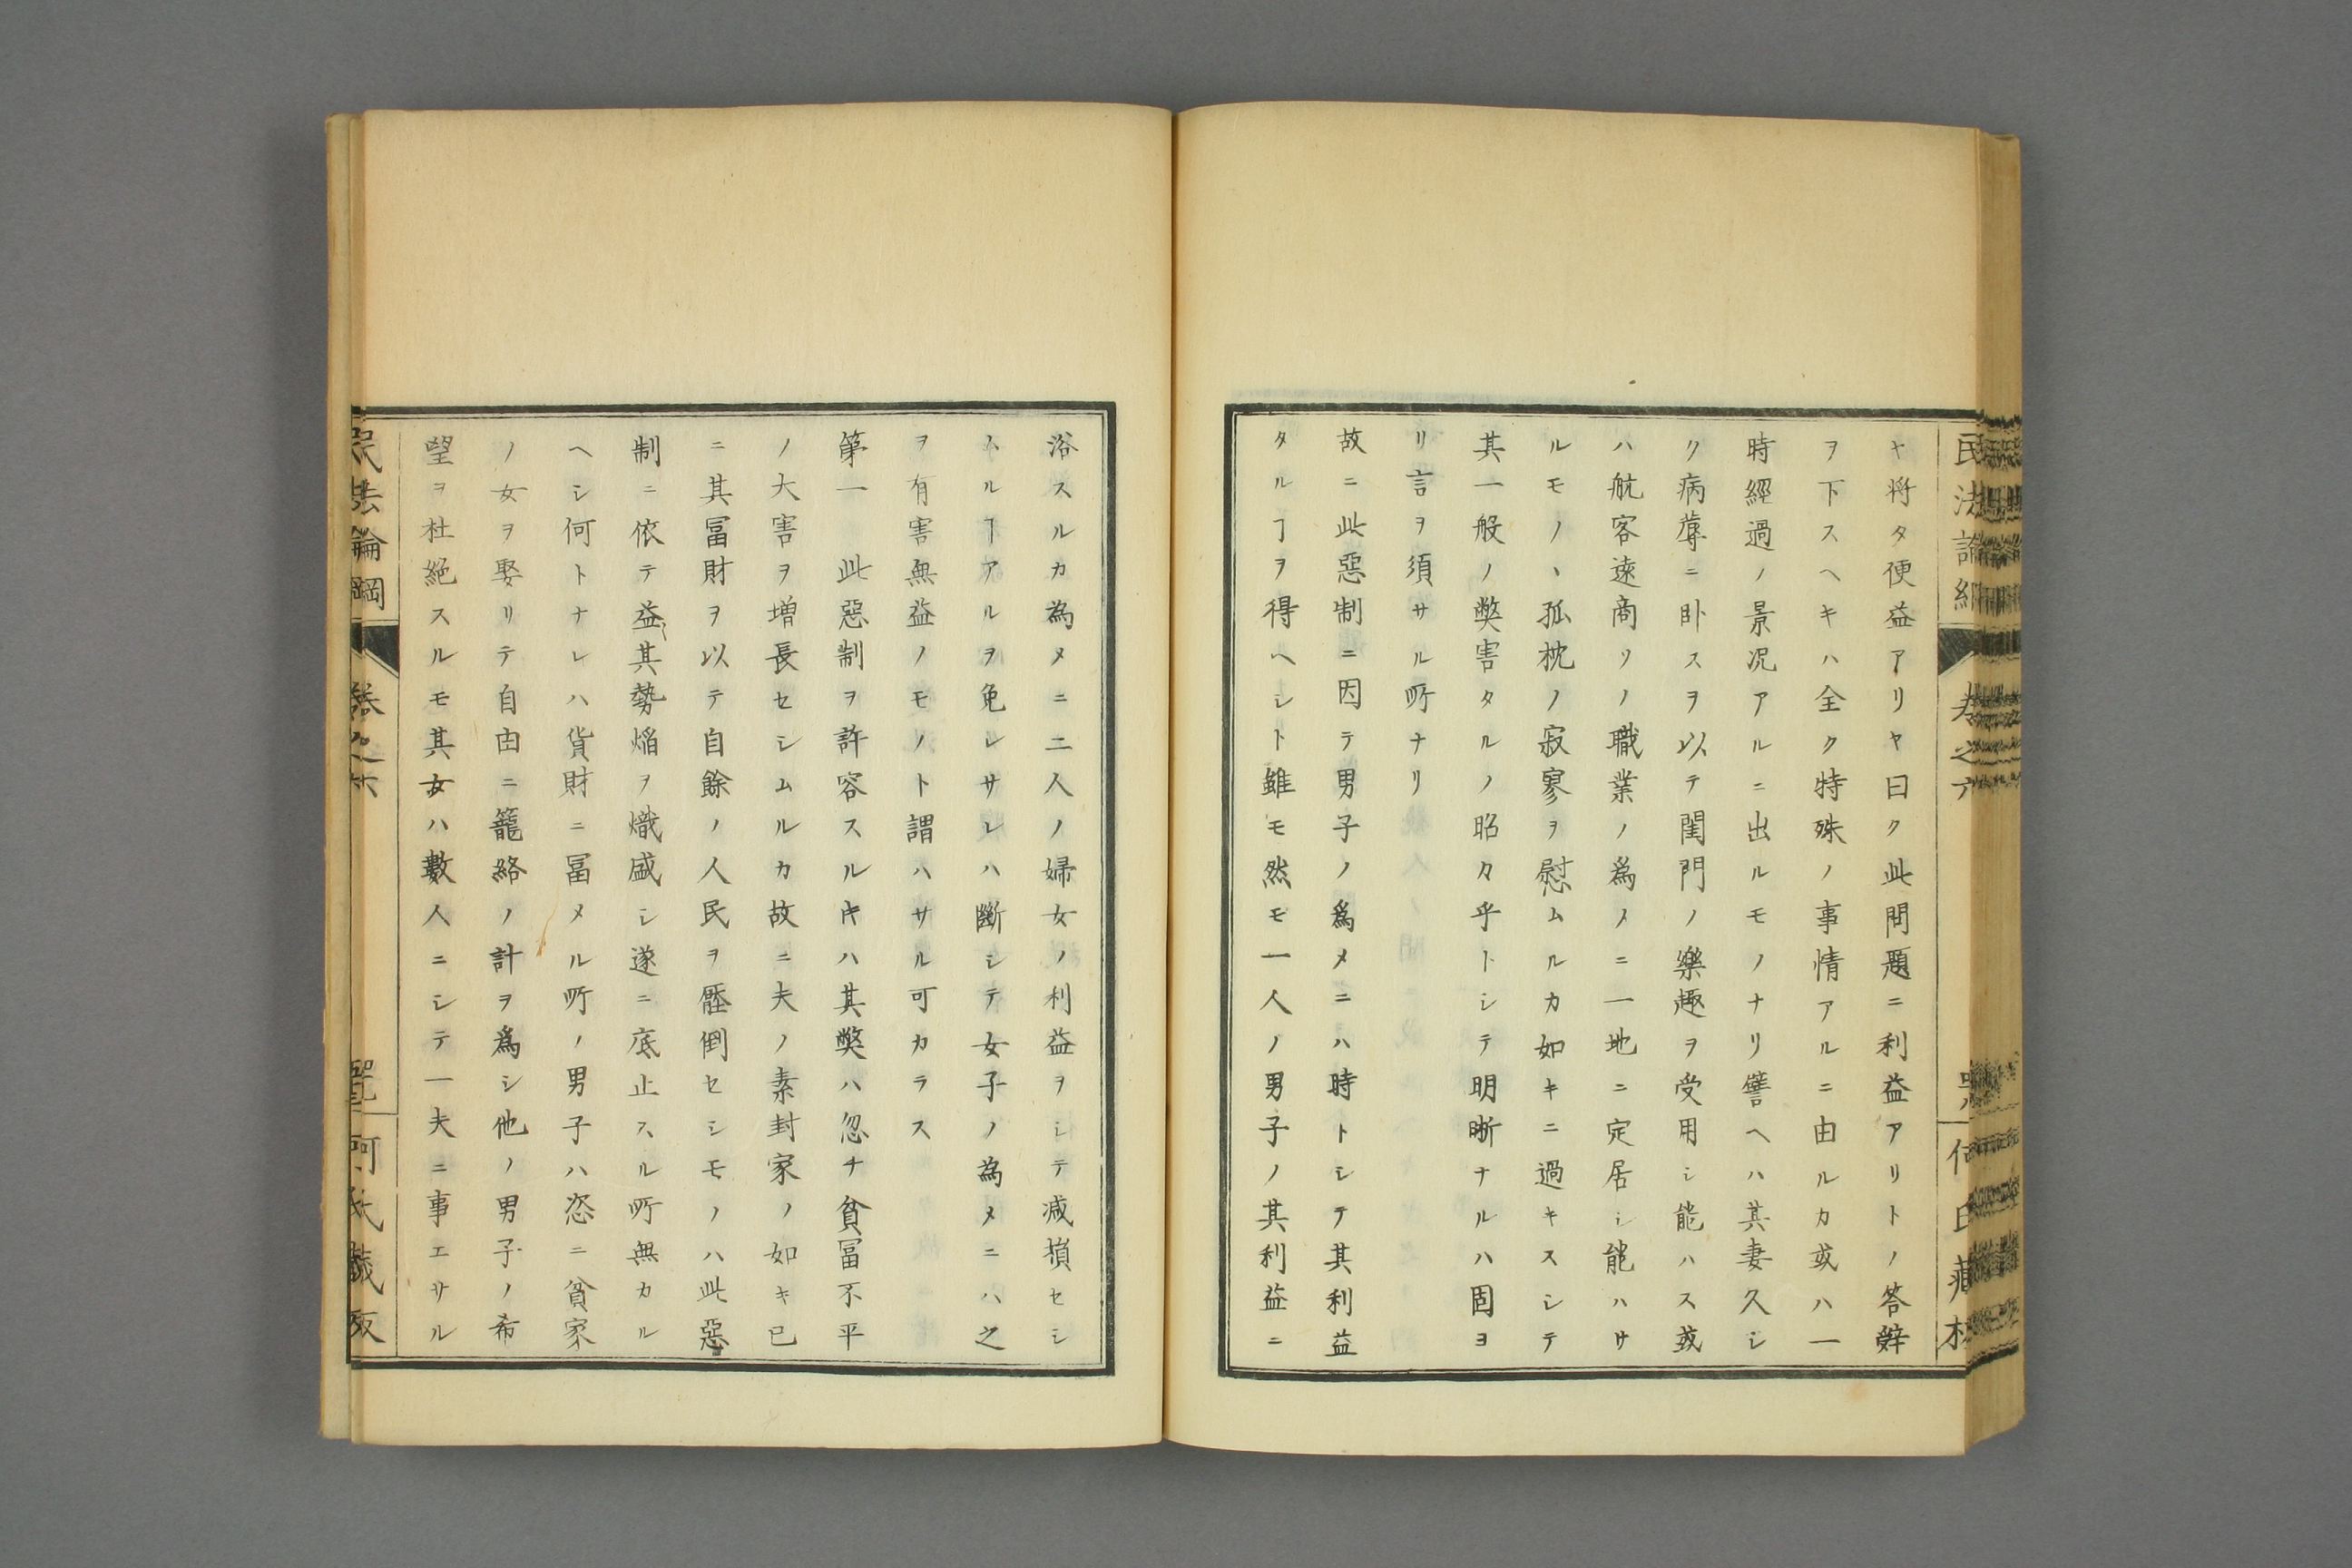 民法論綱
卷之六
何氏藏板
ヤ將タ便益アリヤ曰ク此問題ニ利益アリトノ答辭
ヲ下スヘキハ全ク特殊ノ事情アルニ由ルカ或ハ一
時經過ノ景況アルニ出ルモノナリ譬ヘハ其妻久シ
ク病蓐ニ卧スヲ以テ閨門ノ樂趣ヲ受用シ能ハス或
ハ航客遠商リノ職業ノ爲メニ一地ニ定居シ能ハサ
ルモノヽ孤枕ノ寂寥ヲ慰ムルカ如キニ過キスシテ
其一般ノ獘害タルノ昭々乎トシテ明晣ナルハ固ヨ
リ言ヲ須サル所ナリ
故ニ此惡制ニ因テ男子ノ爲メニハ時トシテ其利益
タルヿヲ得ヘシト雖モ然モ一人ノ男子ノ其利益ニ
浴スルカ為メニ二人ノ婦女ノ利益ヲシテ减損セシ
ムルヿアルヲ免レサレハ斷シテ女子ノ為メニハ之
ヲ有害無益ノモノト謂ハサル可カラス
第一　此惡制ヲ許容スルキハ其獘ハ忽チ貧冨不平
ノ大害ヲ増長セシムルカ故ニ夫ノ素封家ノ如キ已
ニ其冨財ヲ以テ自餘ノ人民ヲ壓倒セシモノハ此惡
制ニ依テ益其勢焔ヲ熾盛シ遂ニ底止スル所無カル
ヘシ何トナレハ貨財ニ冨メル所ノ男子ハ恣ニ貧家
ノ女ヲ娶リテ自由ニ籠絡ノ計ヲ爲シ他ノ男子ノ希
望ヲ杜絶スルモ其女ハ數人ニシテ一夫ニ事エサル
民法論綱
卷之六
何氏藏板